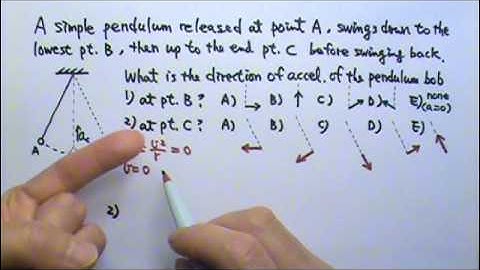 A simple pendulum released at point A, swings down to the
lowest pt. B, then up to the end pt. C before swinging back.
What is the direction of accel. of the pendulum bob
1) at pt. B? A) B) C) D) E) none
(a=0)
2) at pt. C? A) B) C) D) E)
A
v²/r = 0
v=0
2)